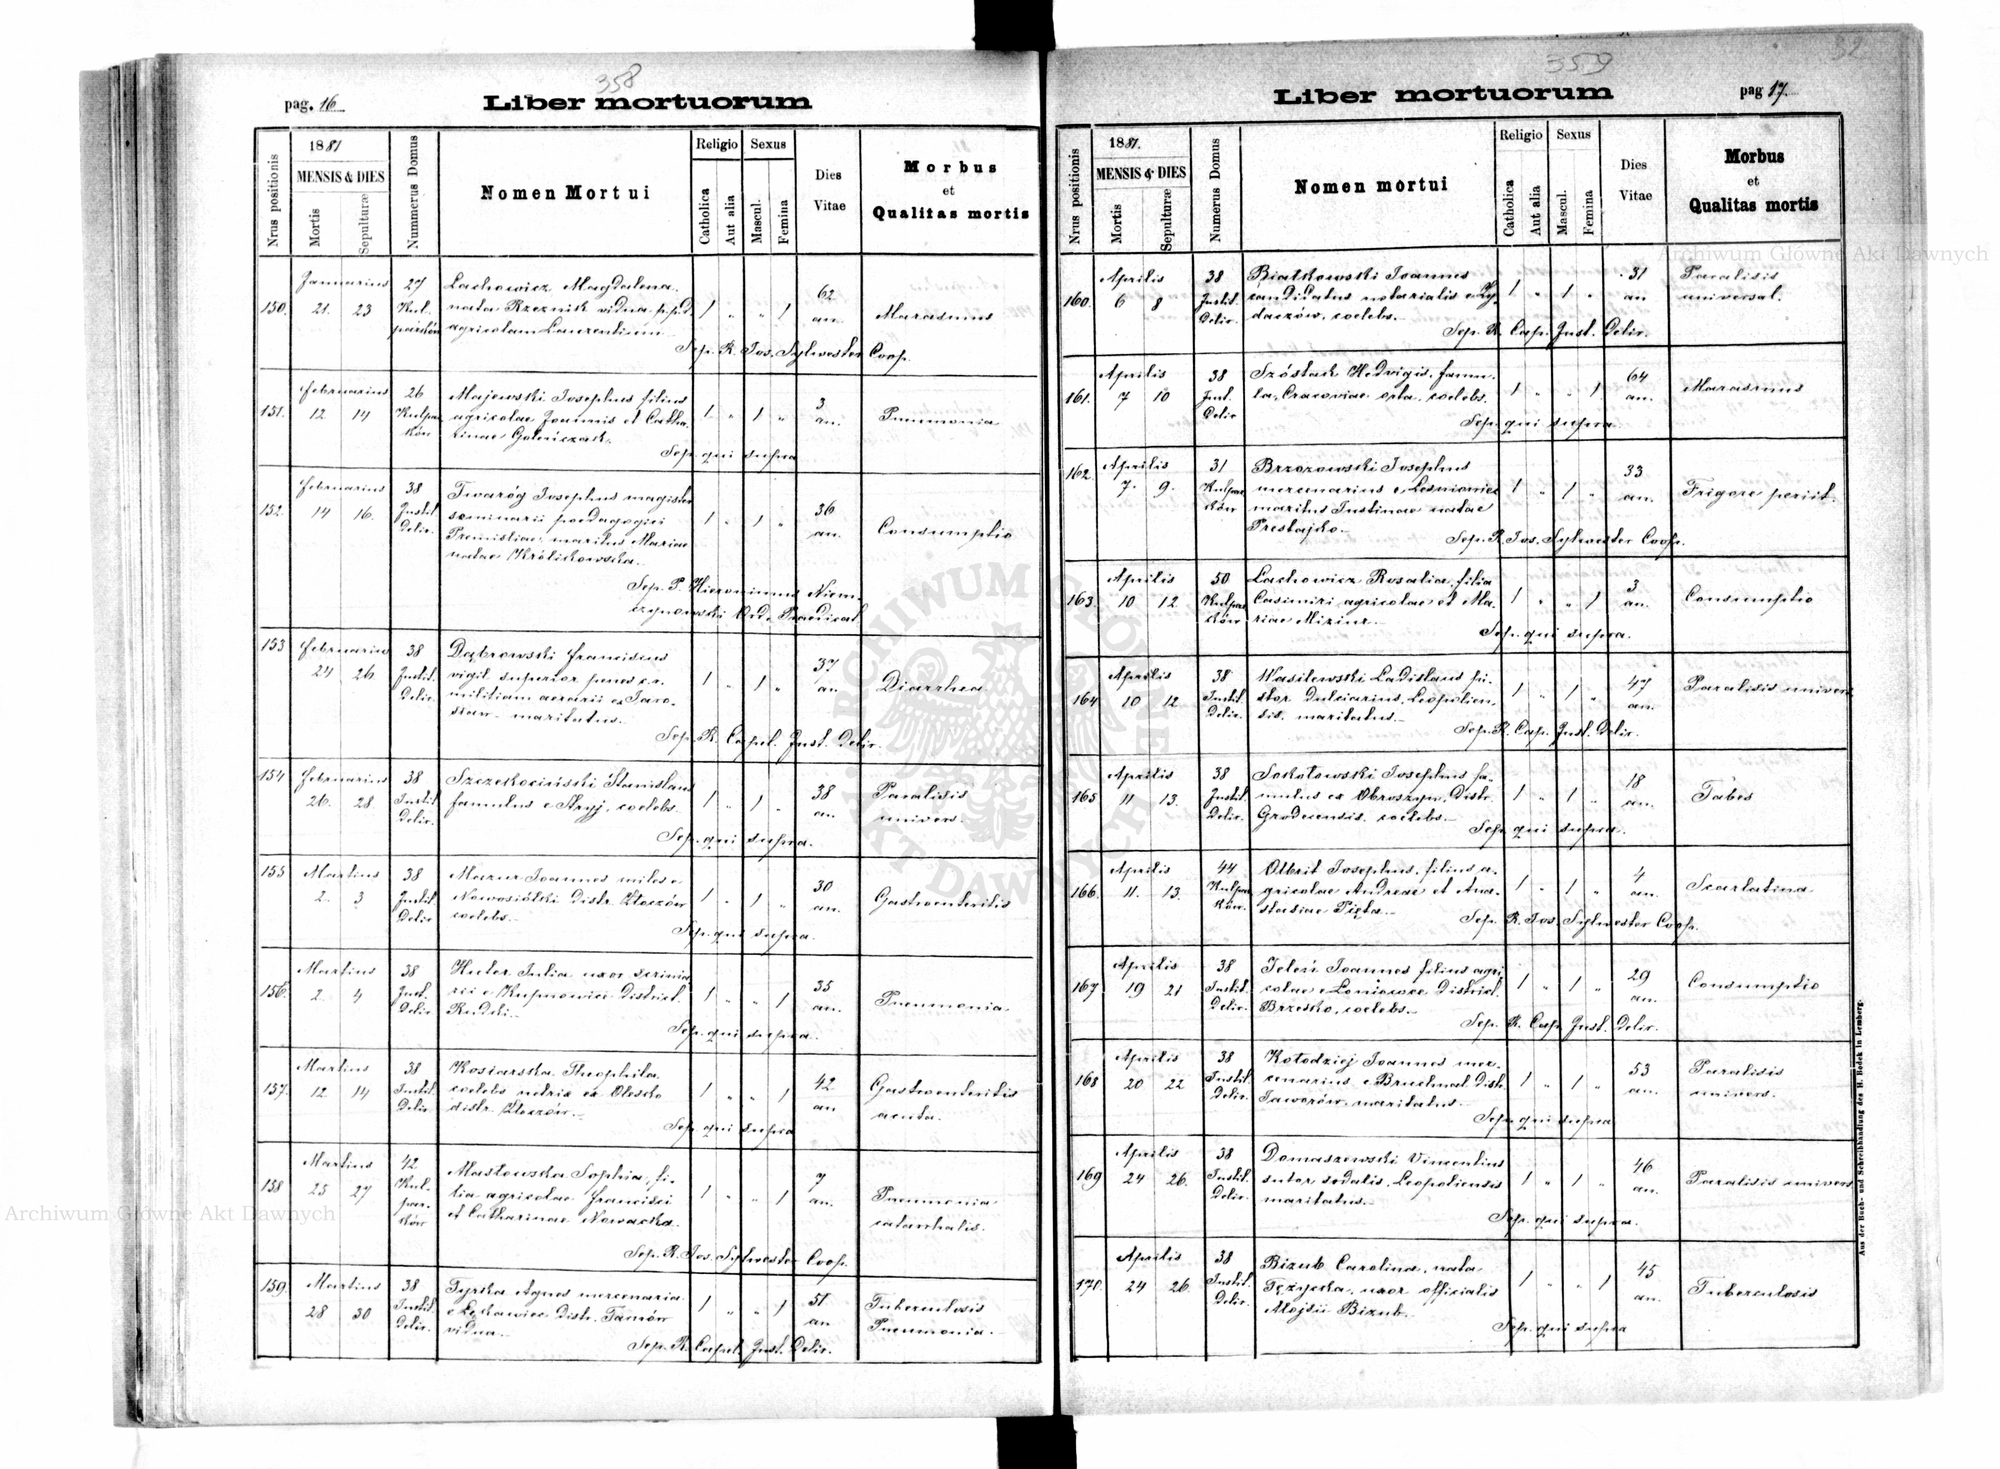 358
pag. 16
Liber mortuorum
Nrus positionis
1881
MENSIS & DIES
Mortis
Sepulturæ
Numerus Domus
Nomen Mortui
Religio
Catholica
Aut alia
Sexus
Mascul.
Femina
Dies
Vitae
Morbus
et
Qualitas mortis
150.
Januarius
21. 23
27
Kul-
parków
Lachowicz Magdalena
nata Rzeznik vidua p. p. d.
agricolam Laurentium
1 " " 1
62
an.
Marasmus
Sep. R. Jos. Sylwester Coop.
151.
Februarius
12 14
26
Kulpar
ków
Majewski Josephus filius
agricolae Joannis et Catha-
rinae
1 " 1 "
3
an.
Pneumonia
Sep. qui supra
152.
Februarius
14 16.
38
Instit.
Delir.
Twaróg Josephus magister
seminarii paedagogici
Premisliae, maritus Mariae
natae Królikowska.
1 " 1 "
36
an.
Consumptio
Sep. P. Hieronimus Niem-
czynowski Ord. Praedicat.
153
Februarius
24 26
38
Instit.
Delir.
Dąbrowski Franciscus
vigil. superior penes c. r.
militiam aerarii ex Jaro-
slaw maritatus.
1 " 1 "
37
an
Diarrhea
Sep. R. Capel. Inst. Delir.
154
Februarius
26. 28.
38
Instit.
Delir.
Szczekociński Stanislaus
famulus e Stryj, coelebs.
1 " 1 "
38
an.
Paralisis
univers.
Sep. qui supra.
155
Martius
2. 3
38
Instit.
Delir
Mazur Joannes miles e
Nowosiółki Distr. Złoczów
coelebs.
1 " 1 "
30
an.
Gastroenteritis
Sep. qui supra.
156.
Martius
2. 4
38
Inst.
Delir
Huter Julia uxor scrinia
rii e Kupnowice District.
Rudki.
1 " " 1
35
an.
Pneumonia
Sep. qui supra.
157.
Martius
12 14
38
Instit.
Delir.
Kosiarska Theophila
coelebs nutrix ex Olesko
distr. Złoczów.
1 " " 1
42
an
Gastroenteritis
acuta.
Sep. qui supra
158
Martius
25 27
42
Kul-
par-
ków
Masłowska Sophia, fi-
lia agricolae Francisci
et Catharinae Nowacka.
1 " " 1
7
an.
Pneumonia
catarrhalis.
Sep. R. Jos. Sylwester Coop.
159.
Martius
28 30
38
Instit.
Delir.
Tyrka Agnes mercenaria
e Łękawiec Distr. Tarnów
vidua.
1 " " 1
51
an
Tuberculosis
Pneumonia.
Sep. R. Capel. Inst. Delir.
359
32
Liber mortuorum
pag 17.
Nrus positionis
1881.
MENSIS & DIES
Mortis
Sepulturæ
Numerus Domus
Nomen mortui
Religio
Catholica
Aut alia
Sexus
Mascul.
Femina
Dies
Vitae
Morbus
et
Qualitas mortis
160.
Aprilis
6 8
38
Instit.
Delir.
Białkowski Joannes
candidatus notarialis e Ży-
daczów, coelebs.
1 " 1 "
31
an
Paralisis
universal.
Sep. R. Cap. Inst. Delir.
161.
Aprilis
7 10
38
Inst.
Delir
Szóstak Hedvigis, famu-
la, Cracoviae orta, coelebs.
1 " " 1
64
an.
Marasmus
Sep. qui supra
162.
Aprilis
7. 9.
31
Kulpar
ków
Brzozowski Josephus
mercenarius e Lesniowice
maritus Justinae natae
Prestajko.
1 " 1 "
33
an.
Frigore periit.
Sep. R. Jos. Sylwester Coop.
163.
Aprilis
10 12
50
Kulpar
ków
Lachowicz Rosalia, filia
Casimiri agricolae et Ma-
riae Miziur.
1 " " 1
3
an.
Consumptio
Sep. qui supra.
164
Aprilis
10 12
38
Instit.
Delir.
Wasilewski Ladislaus pi-
stor dulciarius, Leopolien-
sis, maritatus.
1 " 1 "
47
an.
Paralisis univers
Sep. R. Cap. Inst. Delir.
165
Aprilis
11 13.
38
Instit.
Delir.
Sokołowski Josephus fa-
mulus ex Obroszyn, Distr.
Grodecensis, coelebs.
1 " 1 "
18
an.
Tabes
Sep. qui supra.
166.
Aprilis
11. 13.
44
Kulpar
ków.
Olbrit Josephus, filius a-
gricolae Andreae et Ana-
stasiae Pięta.
1 " 1 "
4
an.
Scarlatina
Sep. R. Jos. Sylwester Coop.
167
Aprilis
19 21
38
Instit.
Delir.
Jeleń Joannes filius agri
colae e Loniowce District.
Brzesko, coelebs.
1 " 1 "
29
an.
Consumptio
Sep. R. Cap. Inst. Delir.
168
Aprilis
20 22
38
Instit.
Delir.
Kołodziej Joannes mer-
cenarius e Bruchnal Distr.
Jaworów, maritatus.
1 " 1 "
53
an.
Paralisis
univers.
Sep. qui supra
169
Aprilis
24 26.
38
Instit.
Delir.
Domaszewski Vincentius
sutor sodalis, Leopoliensis
maritatus.
1 " 1 "
46
an.
Paralisis univers
Sep. qui supra.
170.
Aprilis
24 26.
38
Instit.
Delir.
Bizub Carolina, nata
Tężycka, uxor officialis
Alojsii Bizub.
1 " " 1
45
an.
Tuberculosis
Sep. qui supra
Aus der Buch- und Schreibhandlung des H. Bodek in Lemberg.
Archiwum Główne Akt Dawnych
Archiwum Główne Akt Dawnych
ARCHIWUM GŁÓWNE
AKT DAWNYCH